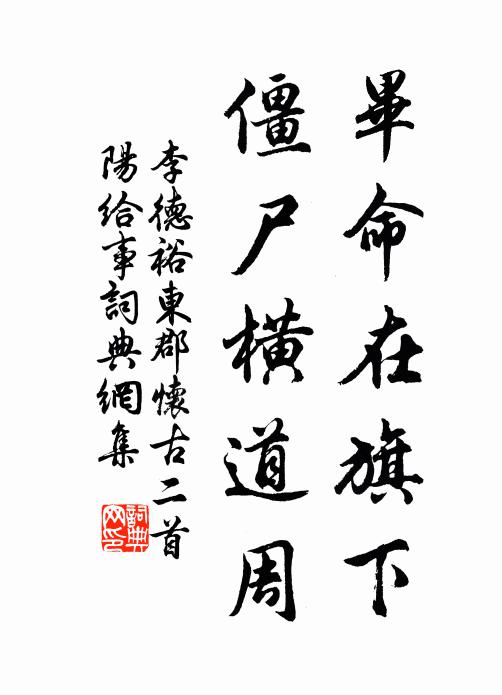 畢命在旗下
僵尸橫道周
李德裕東郡懷古二首
陽給事詞典網集
詞典
网印